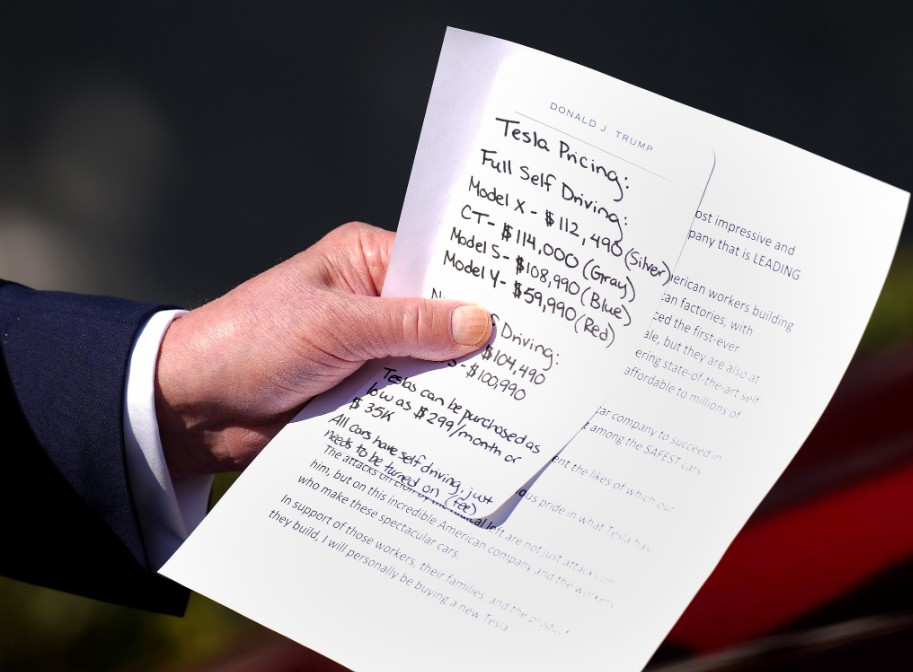 DONALD J. TRUMP
Tesla Pricing:
Full Self Driving:
Model X - $112,490 (Silver)
CT - $114,000 (Gray)
Model S - $108,990 (Blue)
Model Y - $59,990 (Red)
Driving:
$104,490
- $100,990
Teslas can be purchased as
low as $299/month or
$35K
All cars have self driving, just
needs to be turned on (fee)
impressive and
that is LEADING
workers building
factories, with
the first-ever
but they are also at
state-of-the-art self
affordable to millions of
company to succeed in
among the SAFEST cars
the likes of which our
pride in what Tesla has
The attacks on by the left are not just attacks on
him, but on this incredible American company and the workers
who make these spectacular cars.
In support of those workers, their families, and the product
they build, I will personally be buying a new Tesla